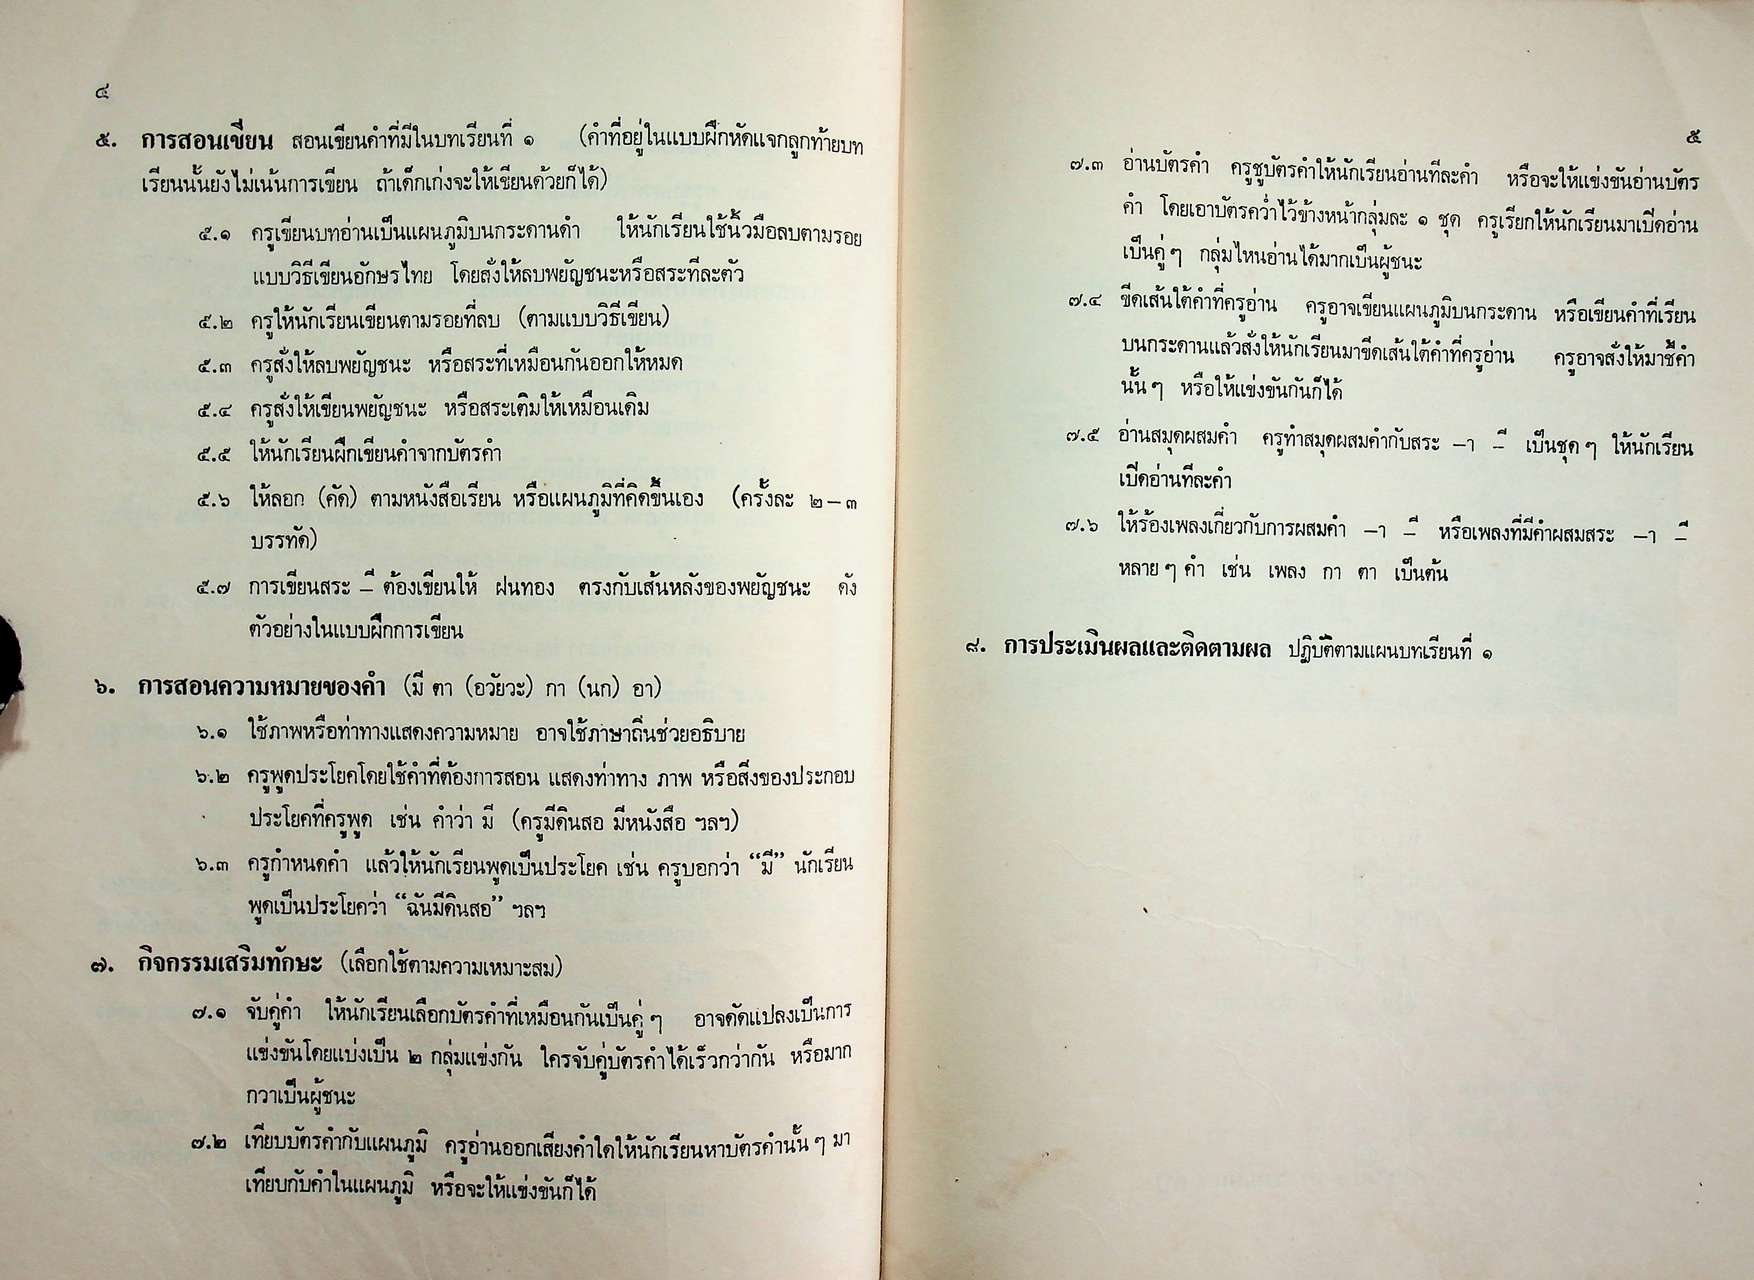 ๔
๕. การสอนเขียน สอนเขียนคำที่มีในบทเรียนที่ ๑ (คำที่อยู่ในแบบฝึกหัดแจกลูกท้ายบท
เรียนนั้นยังไม่เน้นการเขียน ถ้าเด็กเก่งจะให้เขียนด้วยก็ได้)
๕.๑ ครูเขียนบทอ่านเป็นแผนภูมิบนกระดานดำ ให้นักเรียนใช้นิ้วมือลบตามรอย
แบบวิธีเขียนอักษรไทย โดยสั่งให้ลบพยัญชนะหรือสระทีละตัว
๕.๒ ครูให้นักเรียนเขียนตามรอยที่ลบ (ตามแบบวิธีเขียน)
๕.๓ ครูสั่งให้ลบพยัญชนะ หรือสระที่เหมือนกันออกให้หมด
๕.๔ ครูสั่งให้เขียนพยัญชนะ หรือสระเติมให้เหมือนเดิม
๕.๕ ให้นักเรียนฝึกเขียนคำจากบัตรคำ
๕.๖ ให้ลอก (คัด) ตามหนังสือเรียน หรือแผนภูมิที่คิดขึ้นเอง (ครั้งละ ๒–๓
บรรทัด)
๕.๗ การเขียนสระ –ี ต้องเขียนให้ ฝนทอง ตรงกับเส้นหลังของพยัญชนะ ดัง
ตัวอย่างในแบบฝึกการเขียน
๖. การสอนความหมายของคำ (มี ตา (อวัยวะ) กา (นก) อา)
๖.๑ ใช้ภาพหรือท่าทางแสดงความหมาย อาจใช้ภาษาถิ่นช่วยอธิบาย
๖.๒ ครูพูดประโยคโดยใช้คำที่ต้องการสอน แสดงท่าทาง ภาพ หรือสิ่งของประกอบ
ประโยคที่ครูพูด เช่น คำว่า มี (ครูมีดินสอ มีหนังสือ ฯลฯ)
๖.๓ ครูกำหนดคำ แล้วให้นักเรียนพูดเป็นประโยค เช่น ครูบอกว่า “มี” นักเรียน
พูดเป็นประโยคว่า “ฉันมีดินสอ” ฯลฯ
๗. กิจกรรมเสริมทักษะ (เลือกใช้ตามความเหมาะสม)
๗.๑ จับคู่คำ ให้นักเรียนเลือกบัตรคำที่เหมือนกันเป็นคู่ ๆ อาจดัดแปลงเป็นการ
แข่งขันโดยแบ่งเป็น ๒ กลุ่มแข่งกัน ใครจับคู่บัตรคำได้เร็วกว่ากัน หรือมาก
กวาเป็นผู้ชนะ
๗.๒ เทียบบัตรคำกับแผนภูมิ ครูอ่านออกเสียงคำใดให้นักเรียนหาบัตรคำนั้น ๆ มา
เทียบกับคำในแผนภูมิ หรือจะให้แข่งขันก็ได้
๕
๗.๓ อ่านบัตรคำ ครูชูบัตรคำให้นักเรียนอ่านทีละคำ หรือจะให้แข่งขันอ่านบัตร
คำ โดยเอาบัตรคว่ำไว้ข้างหน้ากลุ่มละ ๑ ชุด ครูเรียกให้นักเรียนมาเปิดอ่าน
เป็นคู่ ๆ กลุ่มไหนอ่านได้มากเป็นผู้ชนะ
๗.๔ ขีดเส้นใต้คำที่ครูอ่าน ครูอาจเขียนแผนภูมิบนกระดาน หรือเขียนคำที่เรียน
บนกระดานแล้วสั่งให้นักเรียนมาขีดเส้นใต้คำที่ครูอ่าน ครูอาจสั่งให้มาชี้คำ
นั้น ๆ หรือให้แข่งขันกันก็ได้
๗.๕ อ่านสมุดผสมคำ ครูทำสมุดผสมคำกับสระ –า –ี เป็นชุด ๆ ให้นักเรียน
เปิดอ่านทีละคำ
๗.๖ ให้ร้องเพลงเกี่ยวกับการผสมคำ –า –ี หรือเพลงที่มีคำผสมสระ –า –ี
หลาย ๆ คำ เช่น เพลง กา ตา เป็นต้น
๘. การประเมินผลและติดตามผล ปฏิบัติตามแผนบทเรียนที่ ๑